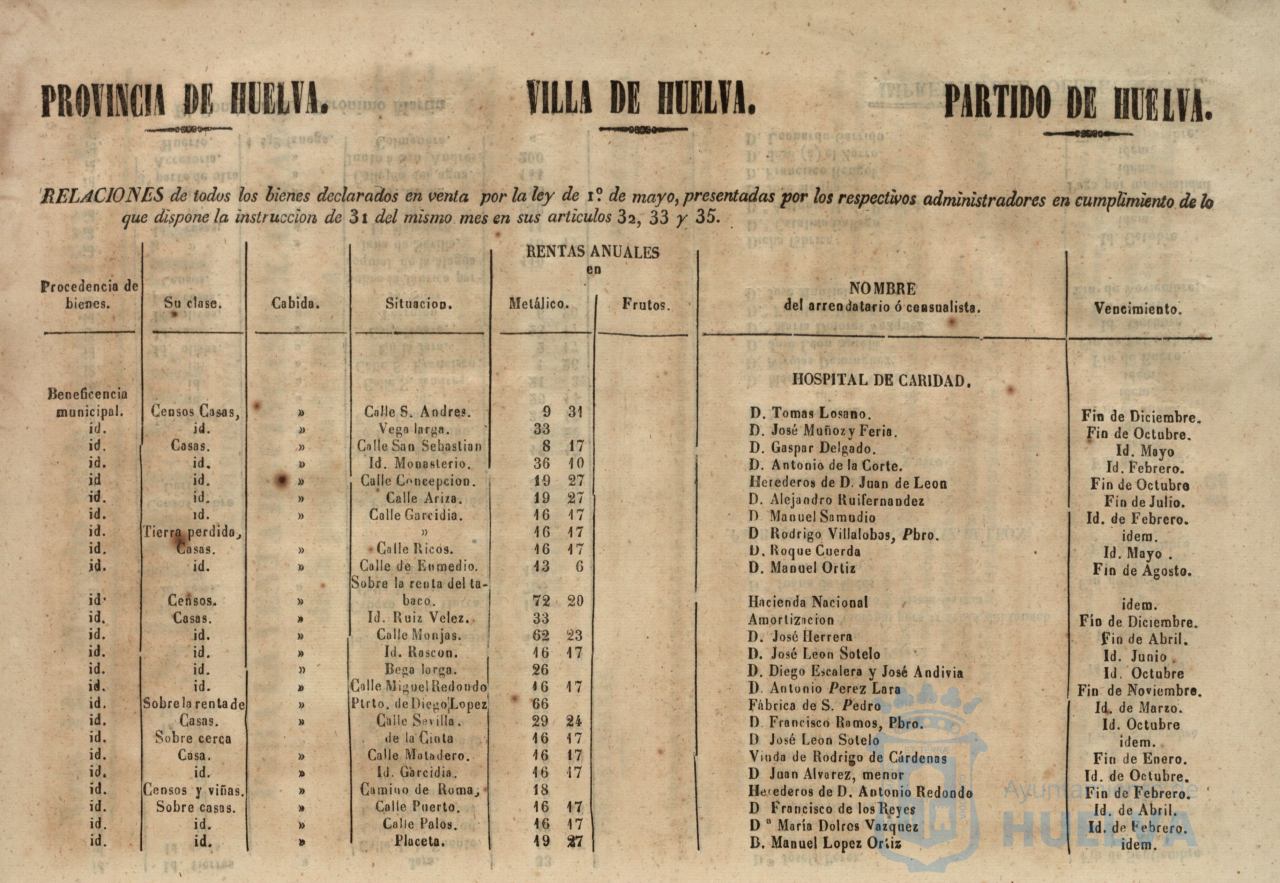 PROVINCIA DE HUELVA. VILLA DE HUELVA. PARTIDO DE HUELVA.
RELACIONES de todos los bienes declarados en venta por la ley de 1º. de mayo, presentadas por los respectivos administradores en cumplimiento de lo
que dispone la instruccion de 31 del mismo mes en sus articulos 32, 33 y 35.
RENTAS ANUALES
en
Procedencia de bienes. Su clase. Cabida. Situacion. Metálico. Frutos. NOMBRE del arrendatario ó censualista. Vencimiento.
HOSPITAL DE CARIDAD.
Beneficencia
municipal. Censos Casas, » Calle S. Andres. 9 31 D. Tomas Losano. Fin de Diciembre.
id. id. » Vega larga. 33 D. José Muñoz y Feria. Fin de Octubre.
id. Casas. » Calle San Sebastian 8 17 D. Gaspar Delgado. Id. Mayo
id. id. » Id. Monasterio. 36 10 D. Antonio de la Corte. Id. Febrero.
id id. » Calle Concepcion. 19 27 Herederos de D. Juan de Leon Fin de Octubre
id. id. » Calle Ariza. 19 27 D. Alejandro Ruifernandez Fin de Julio.
id. id. » Calle Garcidia. 16 17 D Manuel Samudio Id. de Febrero.
id. Tierra perdida, » 16 17 D Rodrigo Villalobos, Pbro. idem.
id. Casas. » Calle Ricos. 16 17 D. Roque Cuerda Id. Mayo .
id. id. » Calle de Enmedio. 13 6 D. Manuel Ortiz Fin de Agosto.
Sobre la renta del ta-
id. Censos. » baco. 72 20 Hacienda Nacional idem.
id. Casas. » Id. Ruiz Velez. 33 Amortizacion Fin de Diciembre.
id. id. » Calle Monjas. 62 23 D. José Herrera Fin de Abril.
id. id. » Id. Rascon. 16 17 D. José Leon Sotelo Id. Junio
id. id. » Bega larga. 26 D. Diego Escalera y José Andivia Id. Octubre
id. id. » Calle Miguel Redondo 16 17 D Antonio Perez Lara Fin de Noviembre.
id. Sobre la renta de Ptrto. de Diego Lopez 66 Fábrica de S. Pedro Id. de Marzo.
id. Casas. » Calle Sevilla. 29 24 D Francisco Ramos, Pbro. Id. Octubre
id. Sobre cerca de la Cinta 16 17 D José Leon Sotelo idem.
id. Casa. » Calle Matadero. 16 17 Viuda de Rodrigo de Cárdenas Fin de Enero.
id. id. » Id. Garcidia. 16 17 D Juan Alvarez, menor Id. de Octubre.
id. Censos y viñas. » Camino de Roma, 18 Herederos de D. Antonio Redondo Fin de Febrero.
id. Sobre casas. » Calle Puerto. 16 17 D Francisco de los Reyes Id. de Abril.
id. id. » Calle Palos. 16 17 Dª María Dolres Vazquez Id. de Febrero.
id. id. » Placeta. 19 27 D. Manuel Lopez Ortiz idem.
Ayuntamiento de
HUELVA